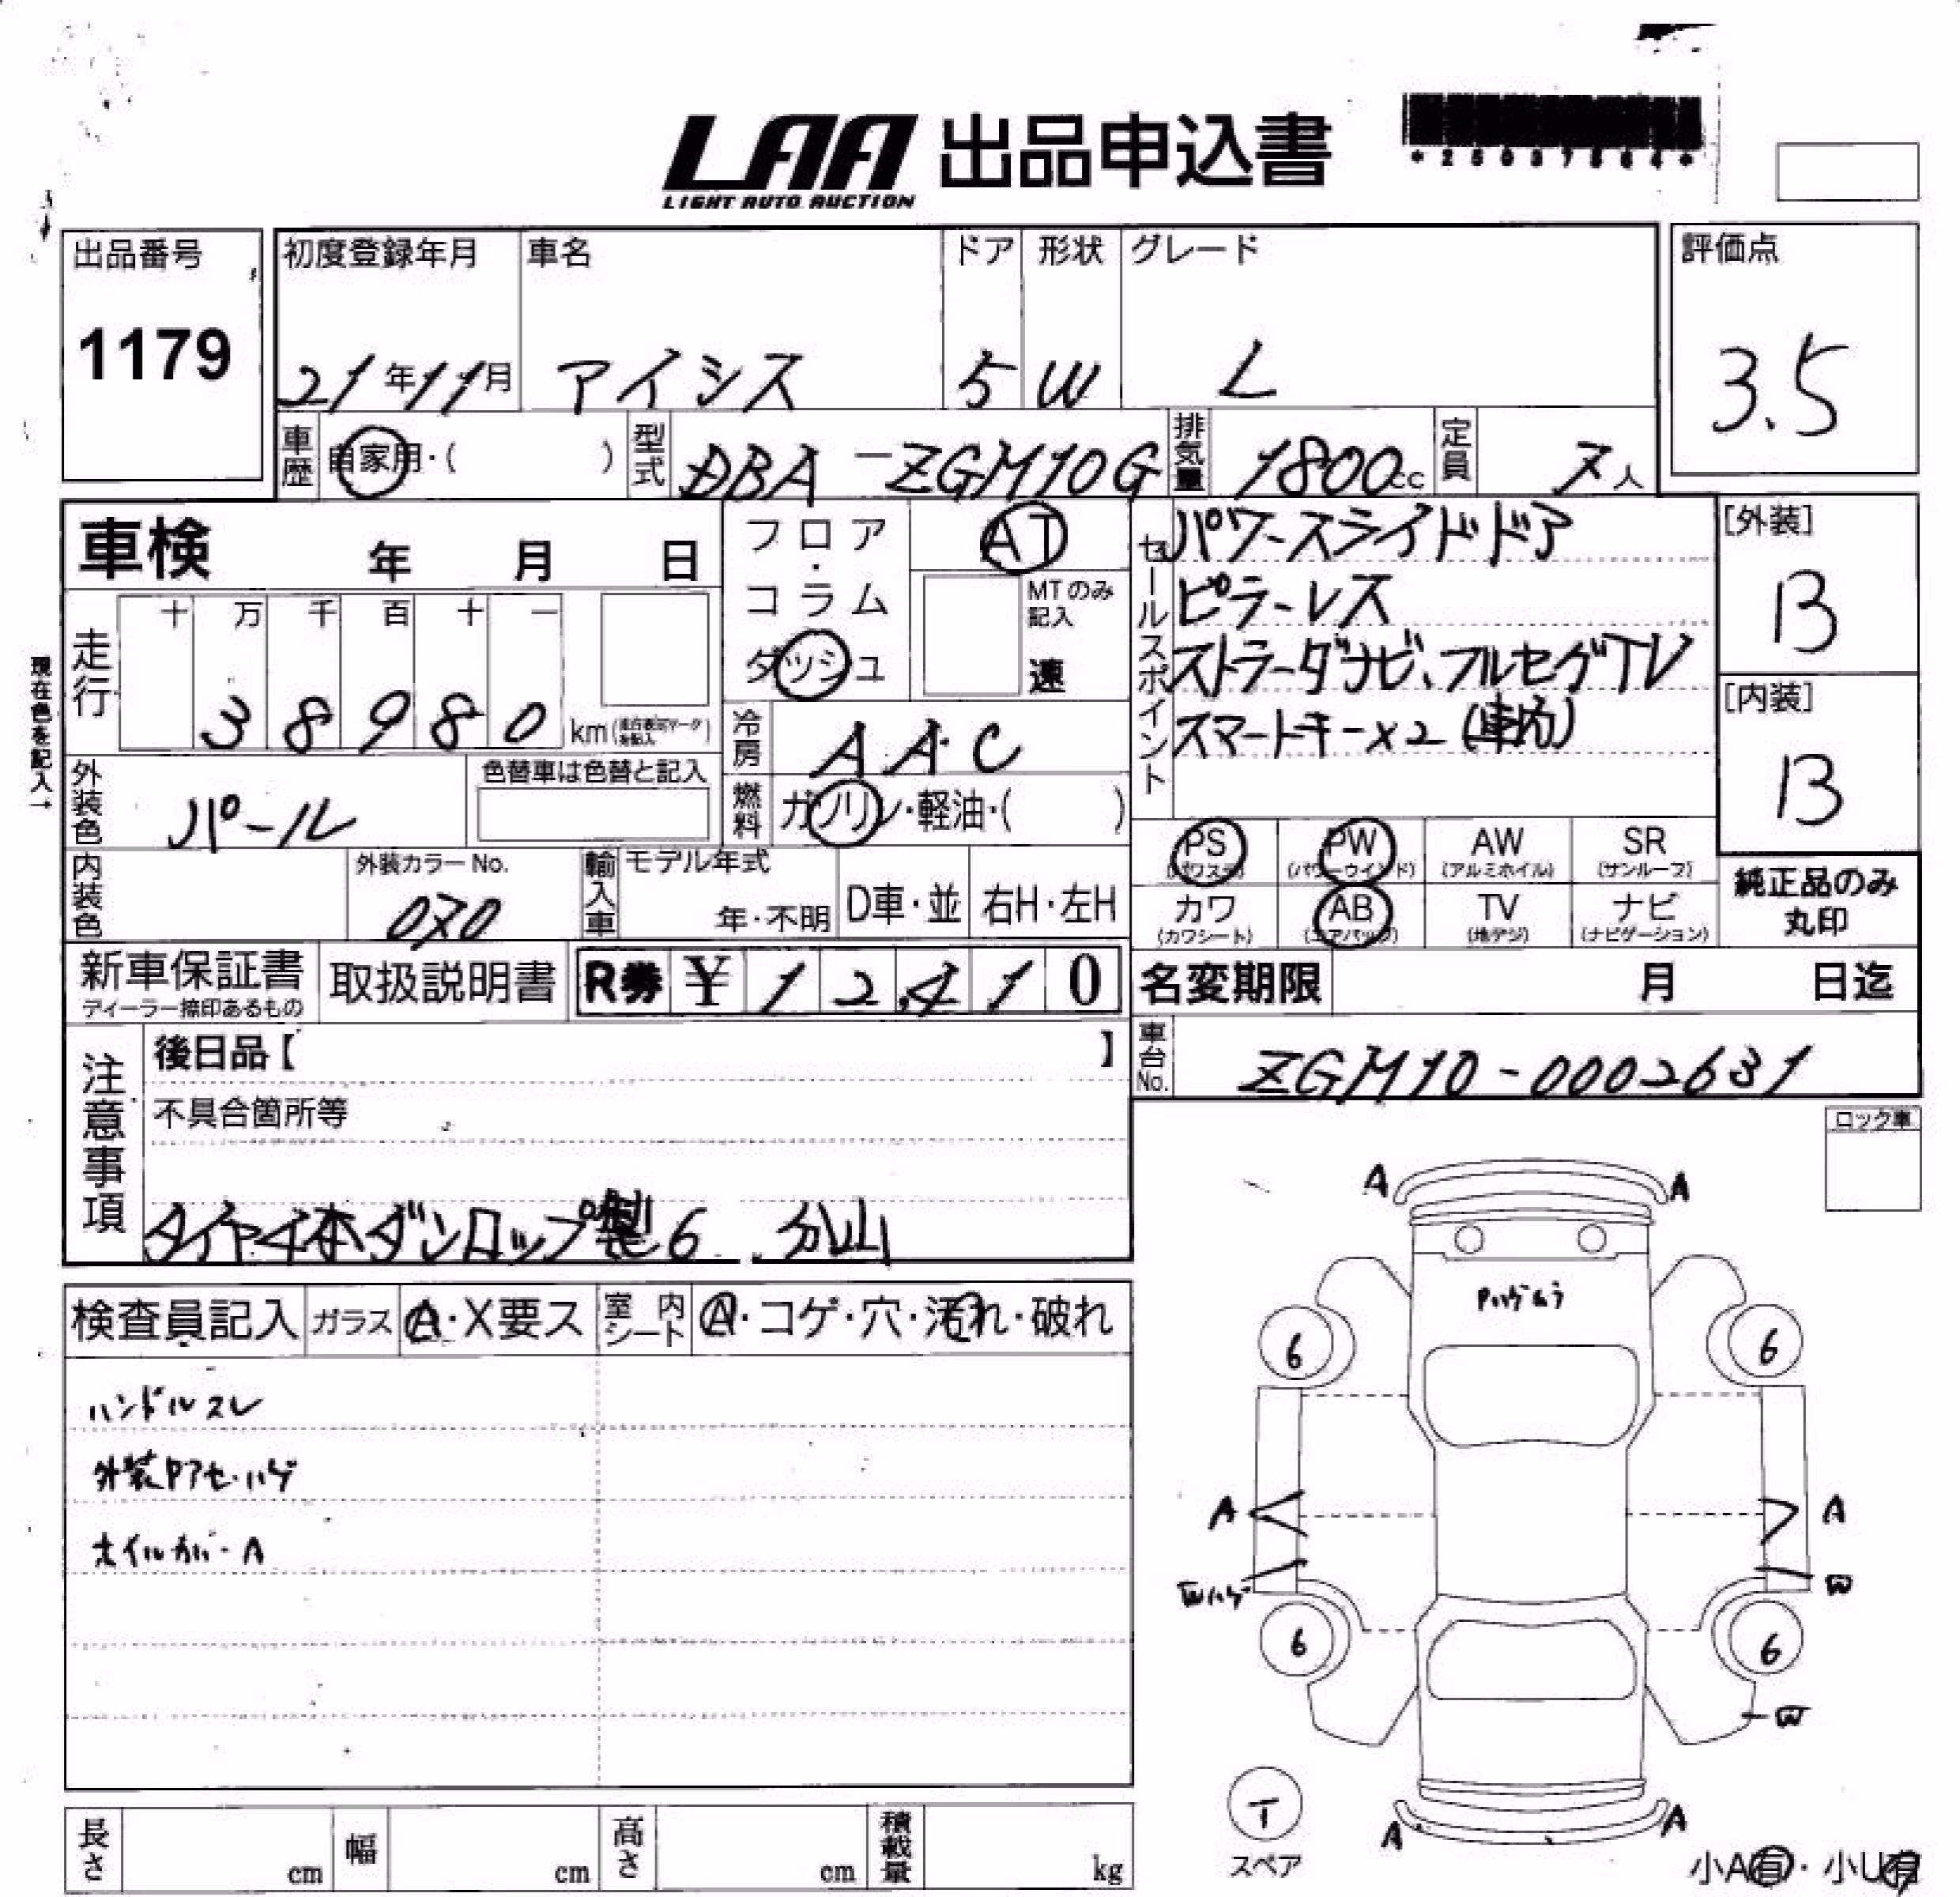 LAA 出品申込書
LIGHT AUTO AUCTION
出品番号
1179
初度登録年月
21年11月
車名
アイシス
ドア
5
形状
W
グレード
L
評価点
3.5
車歴
自家用・( )
型式
DBA-ZGM10G
排気量
1800cc
定員
7人
車検 年 月 日
走行
十 万 千 百 十 一
3 8 9 8 0 km
現在色を記入→
フロア・コラム
ダッシュ
AT
MTのみ記入
速
冷房
AAC
燃料
ガソリン・軽油・( )
セールスポイント
パワースライドドア
ピラーレス
ストラーダナビ、フルセグTV
スマートキー×2 (車内)
[外装]
B
[内装]
B
外装色
パール
色替車は色替と記入
内装色
外装カラーNo.
070
輸入車
モデル年式
年・不明
D車・並
右H・左H
PS (パワステ)
PW (パワーウインド)
AW (アルミホイル)
SR (サンルーフ)
カワ (カワシート)
AB (エアバッグ)
TV (地デジ)
ナビ (ナビゲーション)
純正品のみ
丸印
新車保証書
ディーラー捺印あるもの
取扱説明書
R券 ¥ 1 2,4 1 0
名変期限 月 日迄
車台No.
ZGM10-0002631
注意事項
後日品【 】
不具合箇所等
タイヤ4本ダンロップ製6分山
ロック車
検査員記入
ガラス
A・X要ス
室内シート
A・コゲ・穴・汚れ・破れ
ハンドルスレ
外装Pアセ・ハゲ
ホイルカバーA
A
A
Pハゲムラ
6
6
A
A
Wハゲ
W
6
6
W
T
スペア
A
A
小A有・小U有
長さ cm
幅 cm
高さ cm
積載量 kg